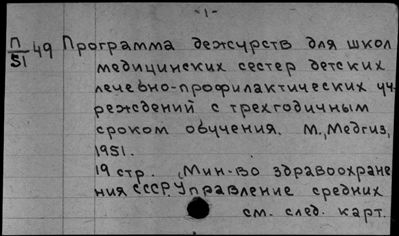 -1-
П/51 49 Программа дежурств для школ
медицинских сестер детских
лечебно-профилактических уч-
реждений с трехгодичным
сроком обучения. М., Медгиз,
1951.
19 стр. (Мин-во здравоохране
ния СССР. Управление средних
см. след. карт.